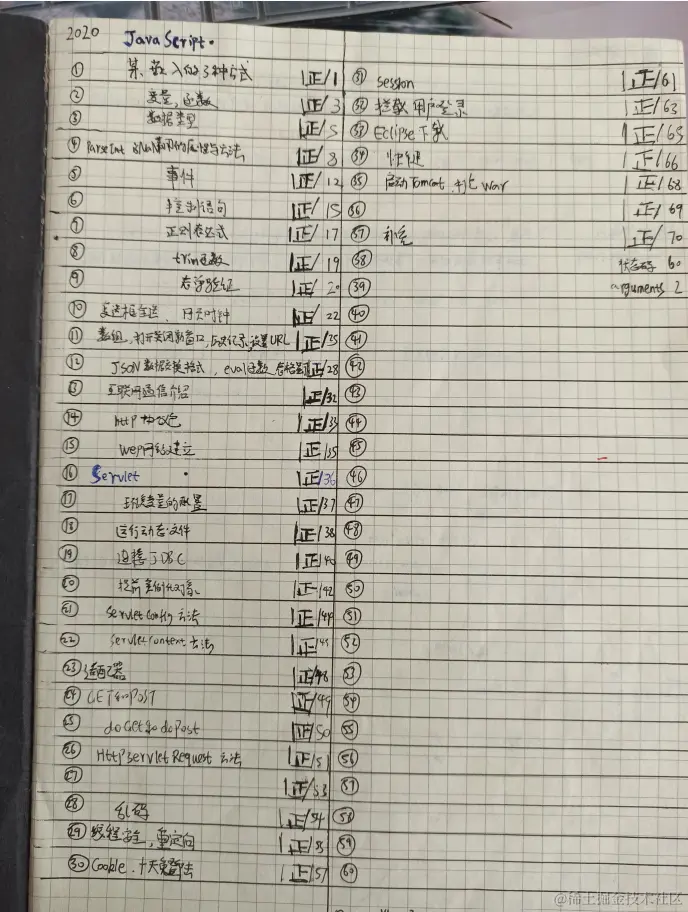 2020 JavaScript.
① 嵌入的3种方式 正/1
② 变量,函数 正/3
③ 数据类型 正/5
④ ParseInt isNaN 属性与方法 正/8
⑤ 事件 正/12
⑥ 控制语句 正/15
⑦ 正则表达式 正/17
⑧ trim函数 正/19
⑨ 正/20
⑩ 复选框全选, 网页时钟 正/22
⑪ 数组,打开关闭新窗口,历史记录,设置URL 正/25
⑫ JSON数据交换格式,eval函数 正/28
⑬ 互联网通信介绍 正/32
⑭ http协议包 正/33
⑮ web网站建立 正/35
⑯ Servlet 正/36
⑰ 环境变量的配置 正/37
⑱ 运行动态文件 正/38
⑲ 连接JDBC 正/40
⑳ 提前实例化对象 正/42
㉑ ServletConfig方法 正/44
㉒ ServletContext方法 正/45
㉓ 适配器 正/48
㉔ GET和POST 正/49
㉕ doGet和doPost 正/50
㉖ HttpServletRequest方法 正/51
㉗ 正/53
㉘ 乱码 正/54
㉙ 线程安全,重定向 正/55
㉚ Cookie.十天免登录 正/57
㉛ session 正/61
㉜ 拦截用户登录 正/63
㉝ Eclipse下载 正/65
㉞ 快捷 正/66
㉟ 启动Tomcat.打包war 正/68
㊱ 正/69
㊲ 补充 正/70
㊳ 状态码 60
㊴ arguments 2
㊵
㊶
㊷
㊸
㊹
㊺
㊻
㊼
㊽
㊾
㊿
51
52
53
54
55
56
57
58
59
60
@稀土掘金技术社区